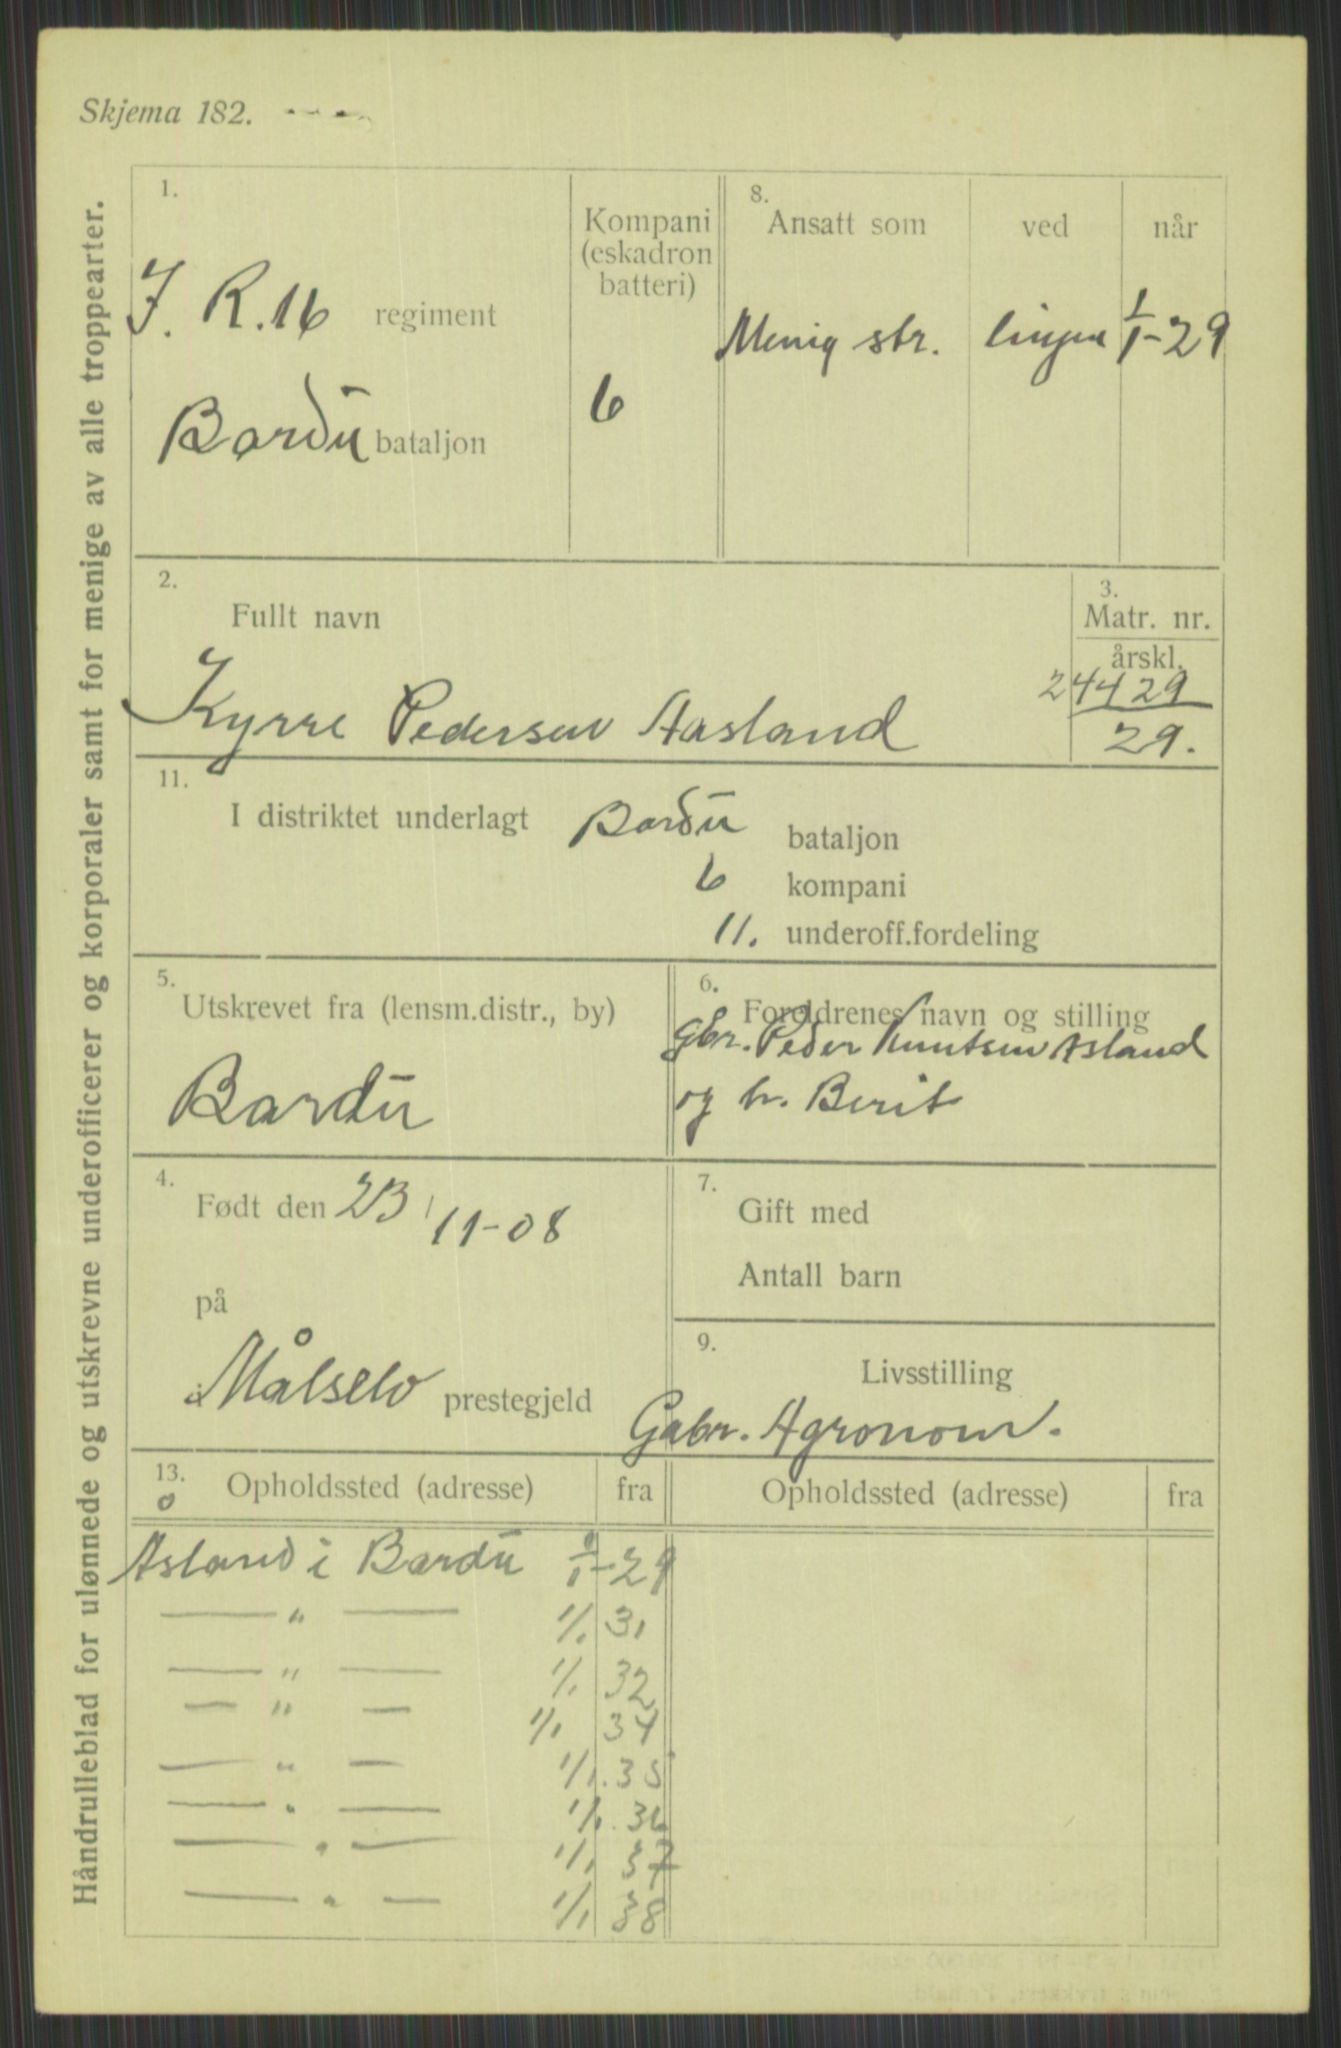 Skjema 182.
Håndrulleblad for ulønnede og utskrevne underofficerer og korporaler samt for menige av alle troppearter.
1.
J. R. 16 regiment
Bardu bataljon
Kompani
(eskadron
batteri)
6
8.
Ansatt som ved når
Menig str. linjen 1/1-29
2.
Fullt navn
Kyrre Pedersen Aasland
3.
Matr. nr.
årskl.
24429
29.
11.
I distriktet underlagt Bardu bataljon
6 kompani
11. underoff.fordeling
5.
Utskrevet fra (lensm.distr., by)
Bardu
6.
Foreldrenes navn og stilling
Gbr. Peder Knutsen Asland
og h. Berit
4.
Født den 23/11-08
på
Målselv prestegjeld
7.
Gift med
Antall barn
9.
Livsstilling
Gabr. Agronom.
13.
Opholdssted (adresse) fra Opholdssted (adresse) fra
Åsland i Bardu 1/1-29
— " — 1/1 31
— " — 1/1 32
— " — 1/1 34
— " — 1/1. 35
— " — 1/1. 36
— " — 1/1 37
— " — 1/1 38